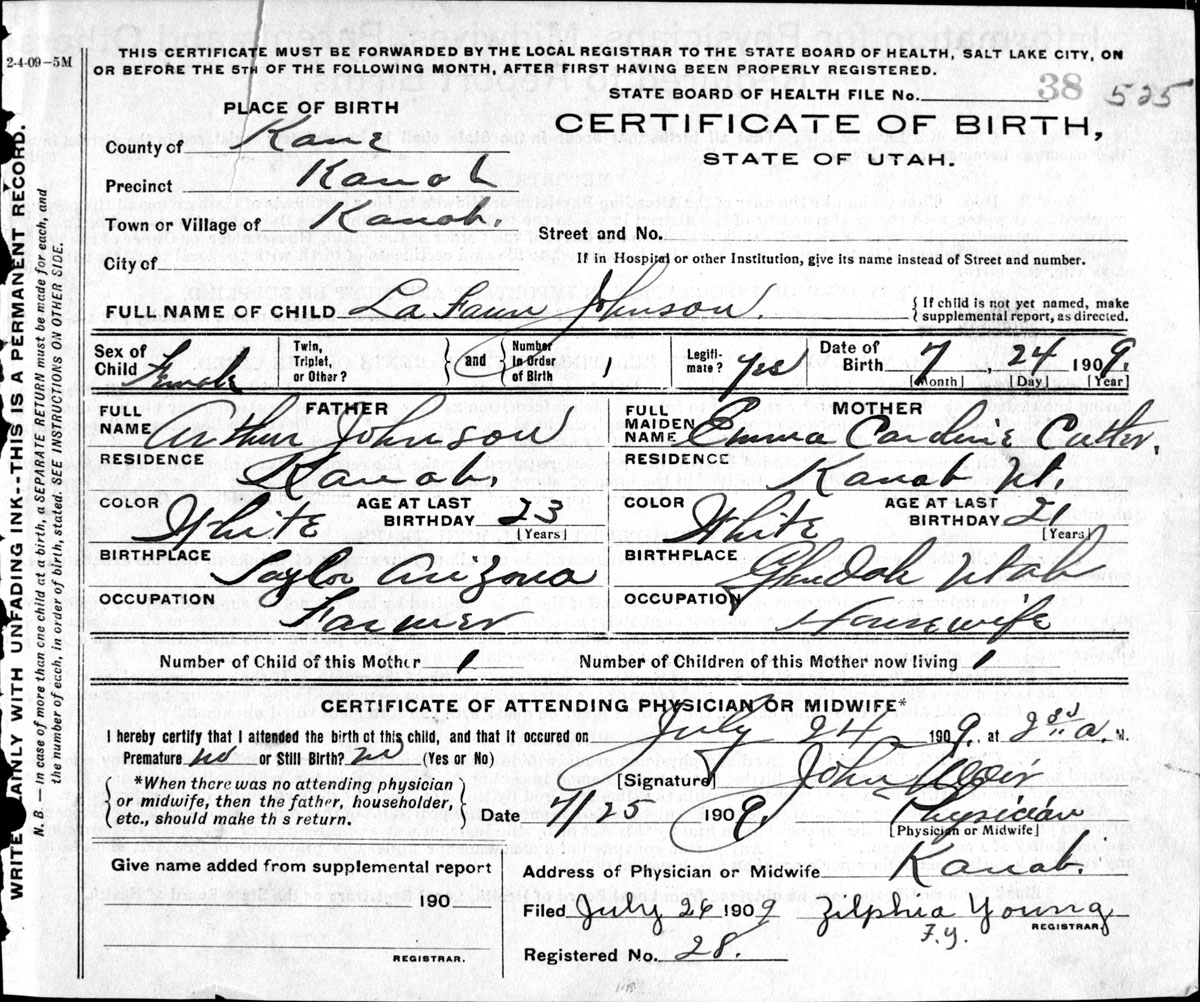 2-4-09-5M
THIS CERTIFICATE MUST BE FORWARDED BY THE LOCAL REGISTRAR TO THE STATE BOARD OF HEALTH, SALT LAKE CITY, ON
OR BEFORE THE 5TH OF THE FOLLOWING MONTH, AFTER FIRST HAVING BEEN PROPERLY REGISTERED.
STATE BOARD OF HEALTH FILE No. 38 525
PLACE OF BIRTH
CERTIFICATE OF BIRTH,
STATE OF UTAH.
County of Kane
Precinct Kanab
Town or Village of Kanab.
Street and No.
City of
If in Hospital or other Institution, give its name instead of Street and number.
FULL NAME OF CHILD La Faun Johnson. {If child is not yet named, make supplemental report, as directed.
Sex of Child Female Twin, Triplet, or Other? } and { Number in Order of Birth 1 Legiti-mate? yes Date of Birth 7, 24 1909.
[Month] [Day] [Year]
FATHER MOTHER
FULL NAME Arthur Johnson FULL MAIDEN NAME Emma Caroline Cutler,
RESIDENCE Kanab. RESIDENCE Kanab Ut.
COLOR White AGE AT LAST BIRTHDAY 23 [Years] COLOR White AGE AT LAST BIRTHDAY 21 [Years]
BIRTHPLACE Taylor Arizona BIRTHPLACE Utah
OCCUPATION Farmer OCCUPATION Housewife
Number of Child of this Mother 1 Number of Children of this Mother now living 1
CERTIFICATE OF ATTENDING PHYSICIAN OR MIDWIFE*
I hereby certify that I attended the birth of this child, and that it occured on July 24 1909, at a. M.
Premature no or Still Birth? no (Yes or No)
[Signature] John
{*When there was no attending physician
or midwife, then the father, householder,
etc., should make this return.}
Date 7/25 1909. Physician
[Physician or Midwife]
Give name added from supplemental report
Address of Physician or Midwife Kanab.
190
Filed July 26 1909 Zilphia Young
F.Y. REGISTRAR
REGISTRAR.
Registered No. 28.
WRITE PLAINLY WITH UNFADING INK--THIS IS A PERMANENT RECORD.
N. B. — In case of more than one child at a birth, a SEPARATE RETURN must be made for each, and
the number of each, in order of birth, stated. SEE INSTRUCTIONS ON OTHER SIDE.